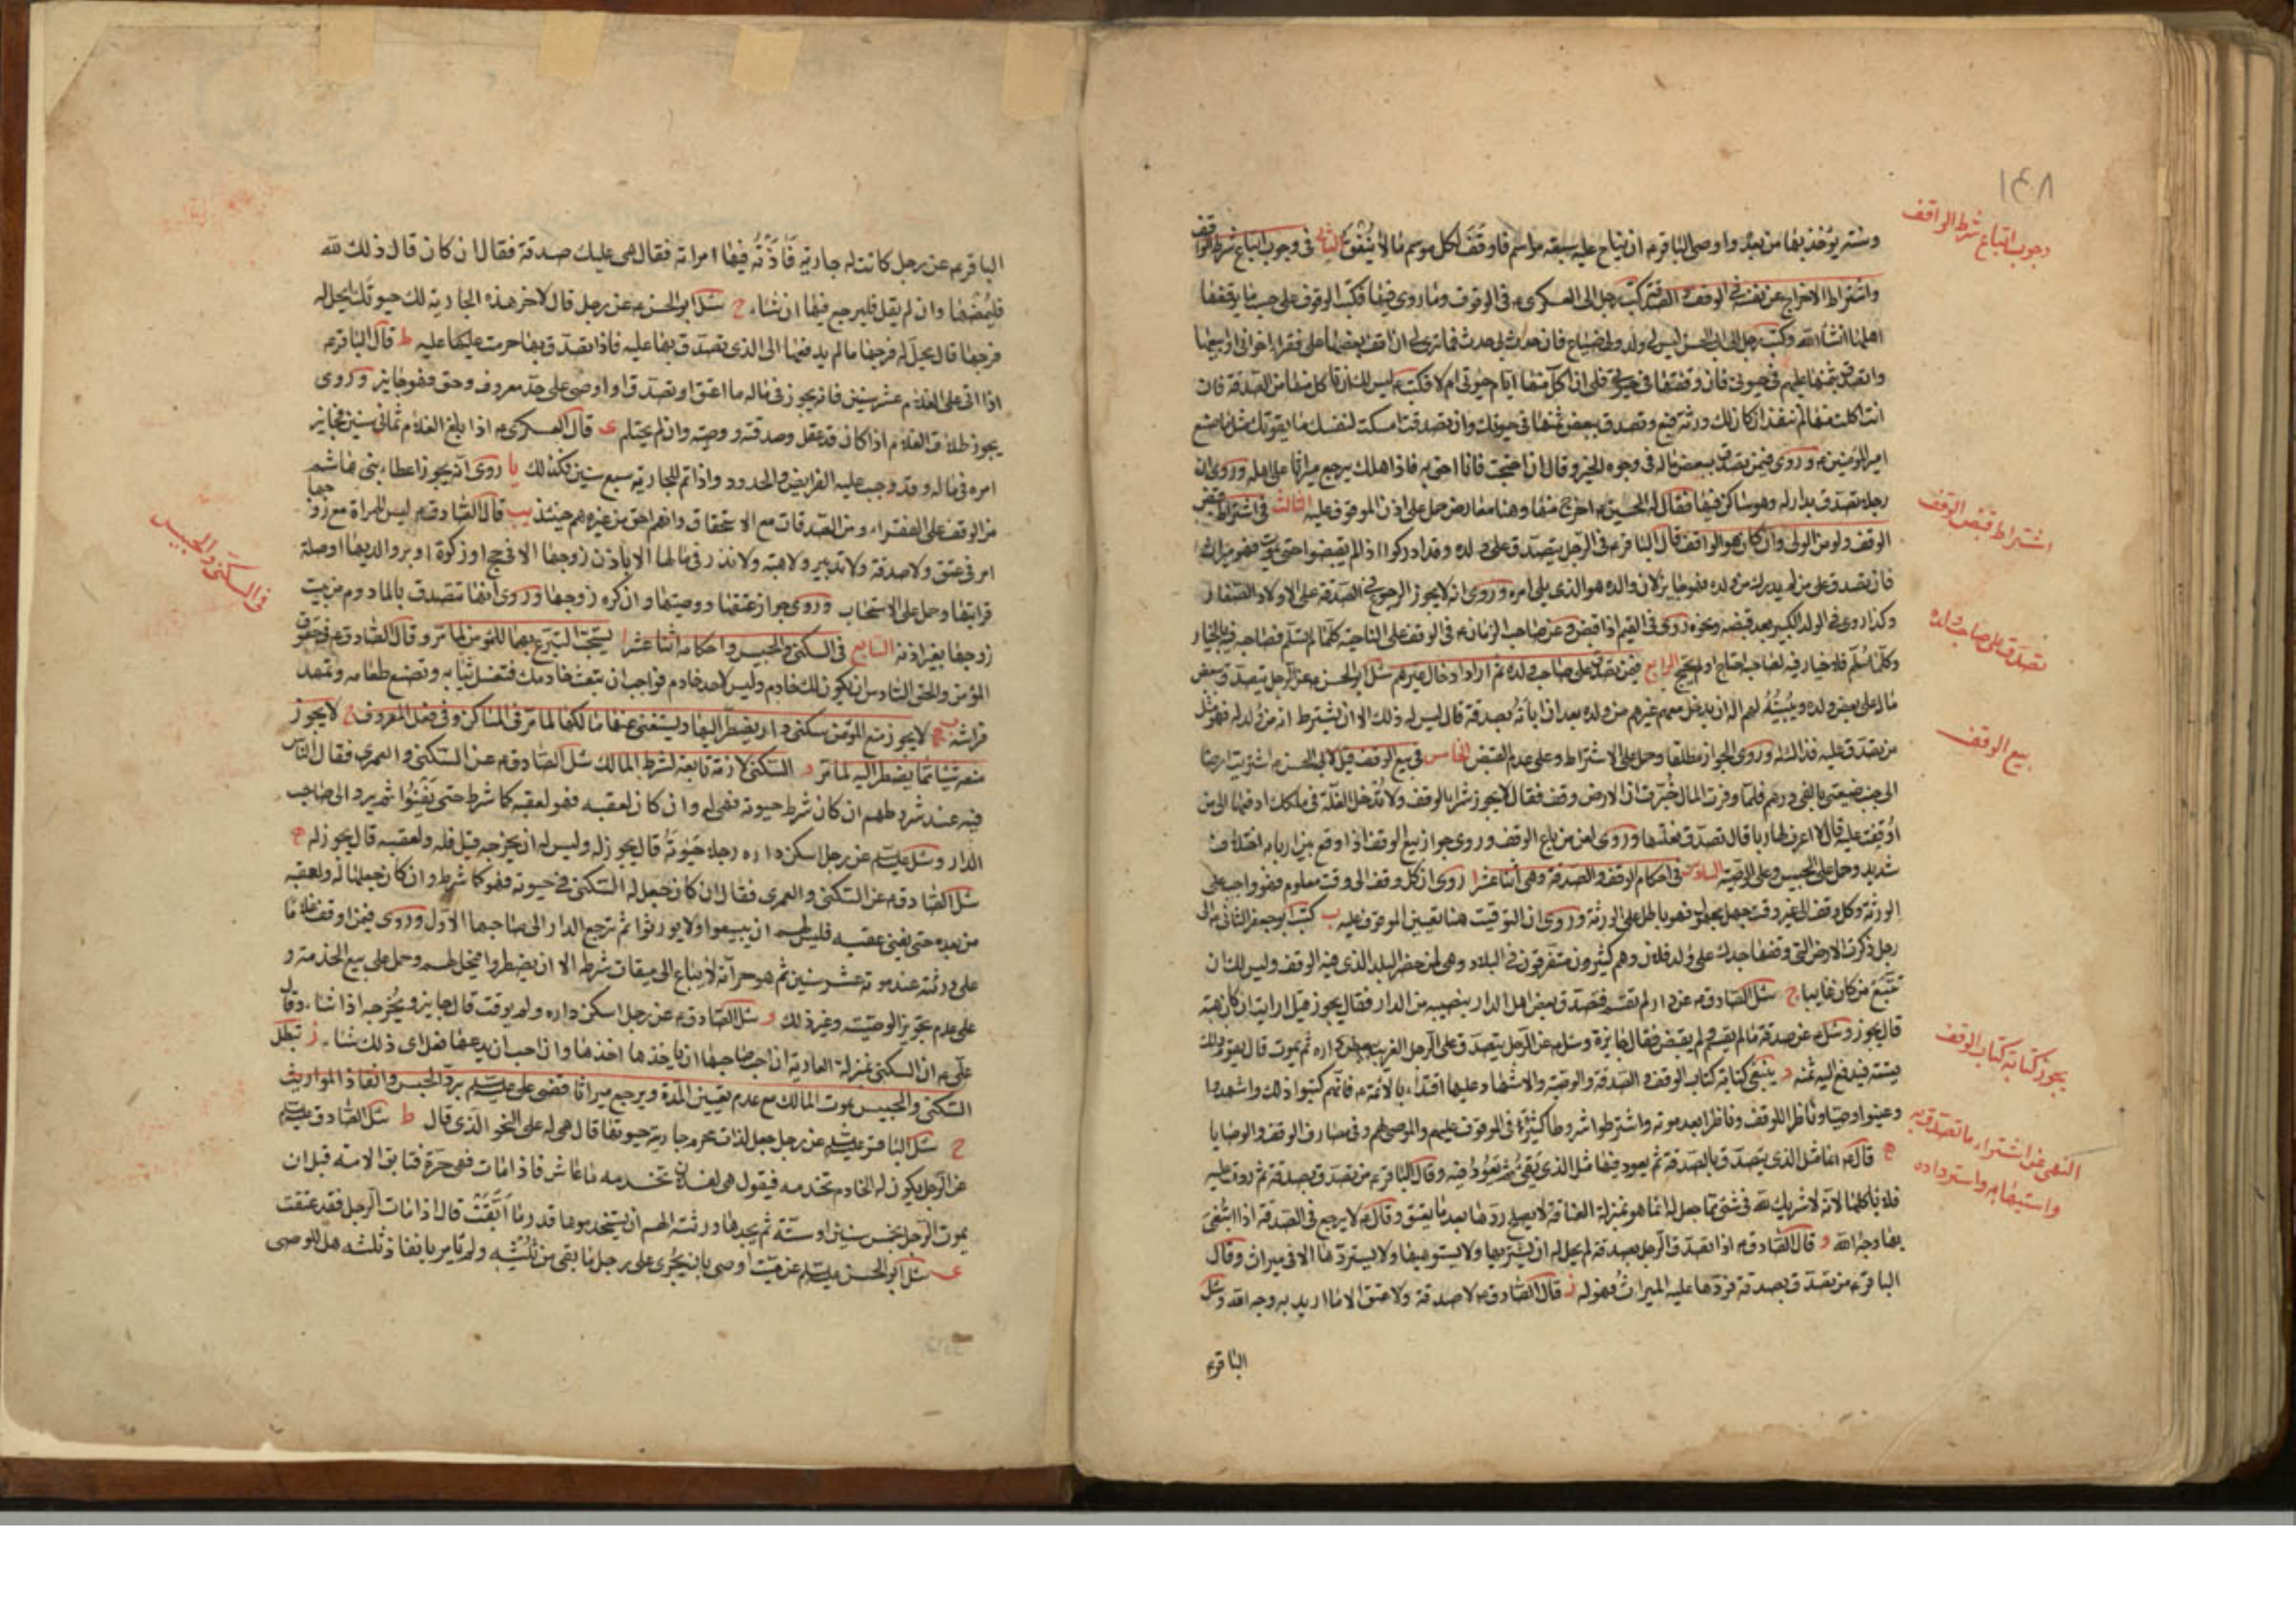 ١٤٨
وجوب اتباع شرط الواقف
وسنة يؤخذ بها من بعده واوصى الباقرع ان يناح عليه سبعة مواسم فاوقف لكل موسم مالا ينفق الثاني في وجوب اتباع شرط الواقف
واشتراط الاخراج عن نفسه في الوقف والصدقة كتب رجل الى العسكري ع في الوقوف وما روي فيها فكتب الوقوف على حسب ما يوقفها
اهلها انشاء الله وكتب رجل الى ابي الحسن ليس لي ولد ولي ضياع فان حدث بي حدث فما ترى لي ان اقف بعضها على فقراء اخواني او ابيعها
واتصدق بثمنها عليهم في حيوتي فان وقفتها في حيوتي فلي ان اكل منها ايام حيوتي ام لا فكتب ع ليس لك ان تاكل منها من الصدقة فان
انت اكلت منها لم تنفذ ان كان لك ورثة فبع وتصدق ببعض ثمنها في حيوتك وان تصدقت امسكت لنفسك ما يقوتك مثل ما صنع
امير المؤمنين ع وروي فيمن تصدق ببعض ماله في وجوه الخير وقال ان احتجت فانا احق به فاذا هلك يرجع ميراثا على اهله وروي ان
رجلا تصدق بدار له وهو ساكن فيها فقال له الحسين ع اخرج منها وهنا معارض حمل على اذن الموقوف عليه الثالث في اشتراط قبض
اشتراط قبض الوقف
الوقف ولو من الولي وان كان هو الواقف قال الباقرع في الرجل يتصدق على ولده وقد ادركوا اذا لم يقبضوا حتى يموت فهو ميراث
فان تصدق على من لم يدرك من ولده فهو جايز لان والده هو الذي يلي امره وروي انه لا يجوز الرجوع في الصدقة على الاولاد الصغار
وكذا روي في الولد الكبير بعد قبضه ونحوه روي في القيم اذا قبض وعن صاحب الزمان ع في الوقف على الناحية كلما لم يسلم فصاحبه فيه بالخيار
تصدق على صاحب ولده
وكلما سلم فلا خيار فيه لصاحبه احتاج او لم يحتج الرابع فيمن تصدق على صاحب ولده ثم اراد ادخال غيرهم سئل ابو الحسن ع عن الرجل يتصدق ببعض
ماله على بعض ولده ويبينه لهم اله ان يدخل معهم غيرهم من ولده بعد ان ابانه بصدقة قال ليس له ذلك الا ان يشترط انه من ولد له فهو مثل
بيع الوقف
من تصدق عليه فذاك له وروي الجواز مطلقا وحمل على الاشتراط وعلى عدم القبض الخامس في بيع الوقف قيل لابي الحسن ع اشتريت ارضا
الى جنب ضيعتي بالفي درهم فلما وفرت المال خبرت ان الارض وقف فقال لا يجوز شراء الوقف ولا تدخل الغلة في ملكك ادفعها الى من
اوقفت عليه قال لا اعرف لها ربا قال تصدق بغلتها وروي لعن من باع الوقف وروي جواز بيع الوقف اذا وقع بين اربابه اختلاف
شديد وحمل على الحبيس وعلى الوصية السادس في احكام الوقف والصدقة وهي اثنا عشر ا روي ان كل وقف الى وقت معلوم فهو واجب على
الورثة وكل وقف الى غير وقت جهل مجهول فهو باطل على الورثة وروي ان التوقيت هنا تعيين الموقوف عليه ب كتب ابو جعفر الثاني ع الى
رجل ذكرت الارض التي وقفها جدك على ولد فلان وهم كثيرون متفرقون في البلاد وهي لمن حضر البلد الذي فيه الوقف وليس لك ان
تتبع من كان غايبا ج سئل الصادق ع عن دار لم تقسم فتصدق بعض اهل الدار بنصيبه من الدار فقال يجوز قيل ارايت ان كان هبة
يجوز كتابة كتاب الوقف
قال يجوز وسئل ع عن صدقة ما لم يقسم ولم يقبض فقال جايزة وسئل ع عن الرجل يتصدق على الرجل الغريب ببعض داره ثم يموت قال يقوم ذلك
قيمته فيدفع اليه ثمنه د ينبغي كتابة كتاب الوقف والصدقة والوصية والاشهاد عليها اقتداء بالائمة ع فانهم كتبوا ذلك واشهدوا
وعينوا وصيا وناظرا للوقف وناظرا بعد موته واشترطوا شروطا كثيرة في الموقوف عليهم والموصى لهم وفي مصارف الوقف والوصايا
النهي عن اشتراء ما تصدق به
واستيهابه واسترداده
ه قال ع انما مثل الذي يتصدق بالصدقة ثم يعود فيها مثل الذي يقئ ثم يعود في قيئه وقال الباقرع من تصدق بصدقة ثم ردت عليه
فلا ياكلها لانه لا شريك لله في شئ مما جعل له انما هو بمنزلة العتاقة لا يصلح ردها بعد ما يعتق وقال ع لا يرجع في الصدقة اذا ابتغى
بها وجه الله و قال الصادق ع اذا تصدق الرجل بصدقة لم يحل له ان يشتريها ولا يستوهبها ولا يستردها الا في ميراث وقال
الباقرع من تصدق بصدقة فردها عليه الميراث فهو له ز قال الصادق ع لا صدقة ولا عتق الا ما اريد به وجه الله وسئل
الباقرع
الباقرع عن رجل كانت له جارية فاذته فيها امراته فقال هي عليك صدقة فقال ان كان قال ذلك لله
فليمضها وان لم يقل فليرجع فيها ان شاء ح سئل ابو الحسن ع عن رجل قال لاخر هذه الجارية لك حيوتك ايحل له
فرجها قال يحل له فرجها ما لم يدفعها الى الذي تصدق بها عليه فاذا تصدق بها حرمت عليه ط قال الباقرع
اذا اتى على الغلام عشر سنين فانه يجوز في ماله ما اعتق او تصدق او اوصى على حد معروف وحق فهو جايز وروي
يجوز طلاق الغلام اذا كان قد عقل وصدقته ووصيته وان لم يحتلم ي قال العسكري ع اذا بلغ الغلام ثماني سنين فجايز
امره في ماله وقد وجب عليه الفرايض والحدود واذا تم للجارية سبع سنين فكذلك يا روي انه يجوز اعطاء بني هاشم
من الوقف على الفقراء ومن الصدقات مع الاستحقاق وانهم احق من غيرهم حينئذ يب قال الصادق ع ليس للمراة مع زوجها
امر في عتق ولا صدقة ولا تدبير ولا هبة ولا نذر في مالها الا باذن زوجها الا في حج او زكوة او بر والديها او صلة
في السكنى والحبيس
قرابتها وحمل على الاستحباب وروي جواز عتقها ووصيتها وان كره زوجها وروي انها تتصدق بالمادوم من بيت
زوجها بغير اذنه السابع في السكنى والحبيس واحكامه اثنا عشر ا يستحب التبرع بهما للمؤمن لما مر وقال الصادق ع في حقوق
المؤمن والحق السادس ان يكون لك خادم وليس لاحد خادم فواجب ان تبعث خادمك فتغسل ثيابه وتصنع طعامه وتمهد
فراشه ب لا يجوز منع المؤمن سكنى دار يضطر اليها ويستغني عنها مالكها لما مر في المساكن وفي فعل المعروف ج لا يجوز
منعه شيئا مما يضطر اليه لما مر د السكنى لازمة تابعة لشرط المالك سئل الصادق ع عن السكنى والعمرى فقال الناس
فيه عند شروطهم ان كان شرط حيوته فهي له وان كان لعقبه فهو لعقبه كما شرط حتى يفنوا ثم يرد الى صاحب
الدار وسئل عليه السلام عن رجل اسكن داره رجلا حيوته قال يجوز له وليس له ان يخرجه قيل فله ولعقبه قال يجوز له ه
سئل الصادق ع عن السكنى والعمرى فقال ان كان جعل له السكنى في حيوته فهو كما شرط وان كان جعلها له ولعقبه
من بعده حتى يفنى عقبه فليس لهم ان يبيعوا ولا يورثوا ثم ترجع الدار الى صاحبها الاول وروي فيمن اوقف غلاما
على ورثته عند موته عشر سنين ثم هو حر انه لا يباع الى ميقات شرطه الا ان يضطروا فيحل لهم وحمل على بيع الخدمة و
على عدم تجويز الوصية وغير ذلك و سئل الصادق ع عن رجل اسكن داره ولم يوقت قال جايز ويخرجه اذا شاء وقال
علي ع ان السكنى بمنزلة العارية ان احب صاحبها ان ياخذها اخذها وان احب ان يدعها فعل اي ذلك شاء ز تبطل
السكنى والحبيس بموت المالك مع عدم تعيين المدة ويرجع ميراثا فقضى علي عليه السلام برد الحبيس وانفاذ المواريث
ح سئل الباقر عليه السلام عن رجل جعل لذات محرم جارية حيوتها قال هي له على النحو الذي قال ط سئل الصادق عليه السلام
عن الرجل يكون له الخادم تخدمه فيقول هي لفلان تخدمه ما عاش فاذا مات فهي حرة فتابق الامة قبل ان
يموت الرجل بخمس سنين او ستة ثم يجدها ورثته الهم ان يستخدموها قدر ما ابقت قال اذا مات الرجل فقد عتقت
ي سئل ابو الحسن عليه السلام عن ميت اوصى بان يجرى على رجل ما بقي من ثلثه ولم يامر بانفاذ ثلثه هل للوصي